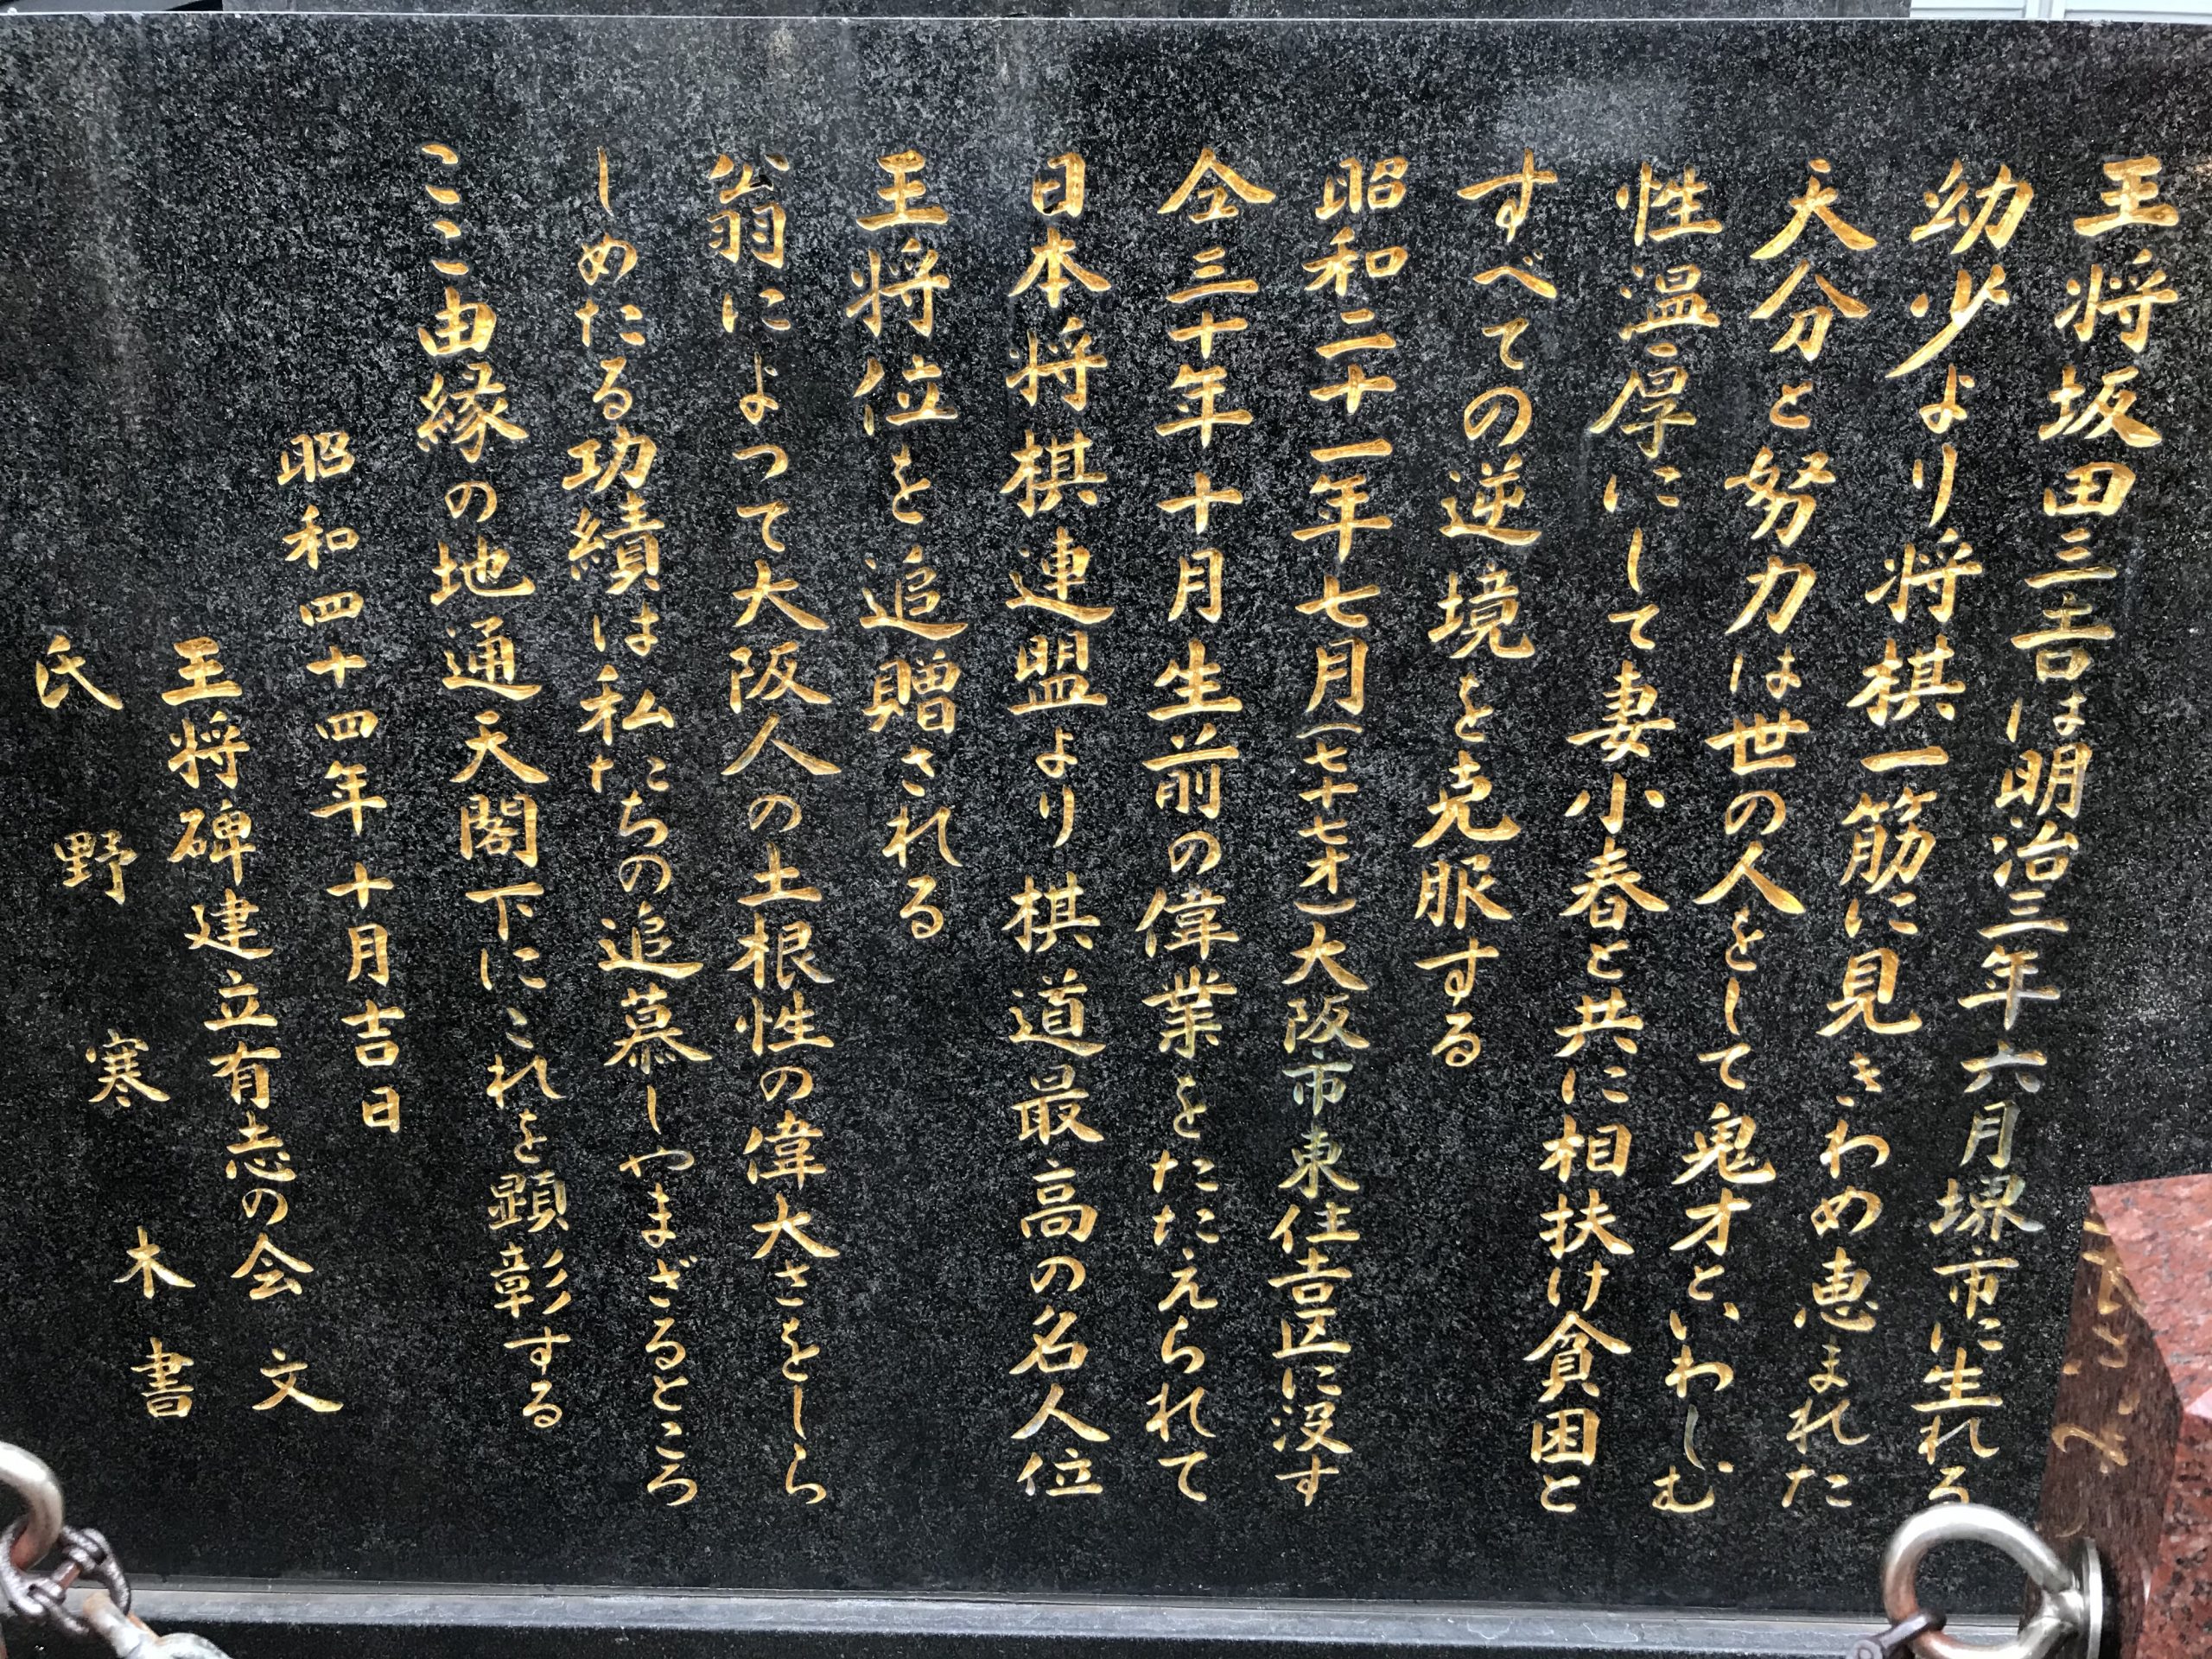 王将坂田三吉は明治三年六月堺市に生れる
幼少より将棋一筋に見きわめ恵まれた
天分と努力は世の人をして鬼才と、いわしむ
性温厚にして妻小春と共に相扶け貧困と
すべての逆境を克服する
昭和二十一年七月(七十七才)大阪市東住吉区に没す
仝三十年十月生前の偉業をたたえられて
日本将棋連盟より棋道最高の名人位
王将位を追贈される
翁によつて大阪人の土根性の偉大さをしら
しめたる功績は私たちの追慕しやまざるところ
ここ由縁の地通天閣下にこれを顕彰する
昭和四十四年十月吉日
王将碑建立有志の会 文
氏野寒木書